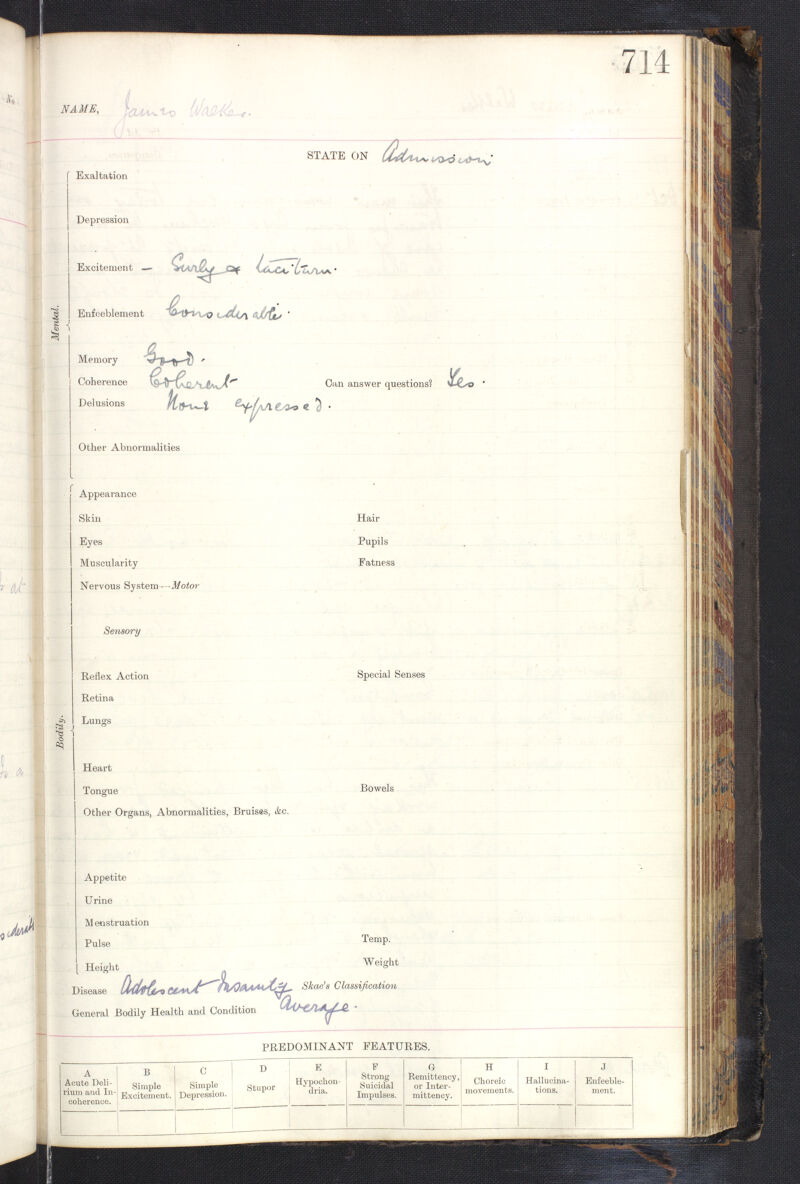 714
NAME, James Walker.
STATE ON Admission
Exaltation
Depression
Excitement — Surly & taciturn.
Mental.
Enfeeblement Considerable.
Memory Good.
Coherence Coherent Can answer questions? Yes.
Delusions None expressed.
Other Abnormalities
Appearance
Skin Hair
Eyes Pupils
Muscularity Fatness
Nervous System—Motor
Sensory
Reflex Action Special Senses
Retina
Bodily.
Lungs
Heart
Tongue Bowels
Other Organs, Abnormalities, Bruises, &c.
Appetite
Urine
Menstruation
Pulse Temp.
Height Weight
Disease Adolescent Insanity Skae's Classification
General Bodily Health and Condition Average.
PREDOMINANT FEATURES.
A B C D E F G H I J
Acute Deli-
rium and In-
coherence.
Simple
Excitement.
Simple
Depression.
Stupor
Hypochon-
dria.
Strong
Suicidal
Impulses.
Remittency,
or Inter-
mittency.
Choreic
movements.
Hallucina-
tions.
Enfeeble-
ment.